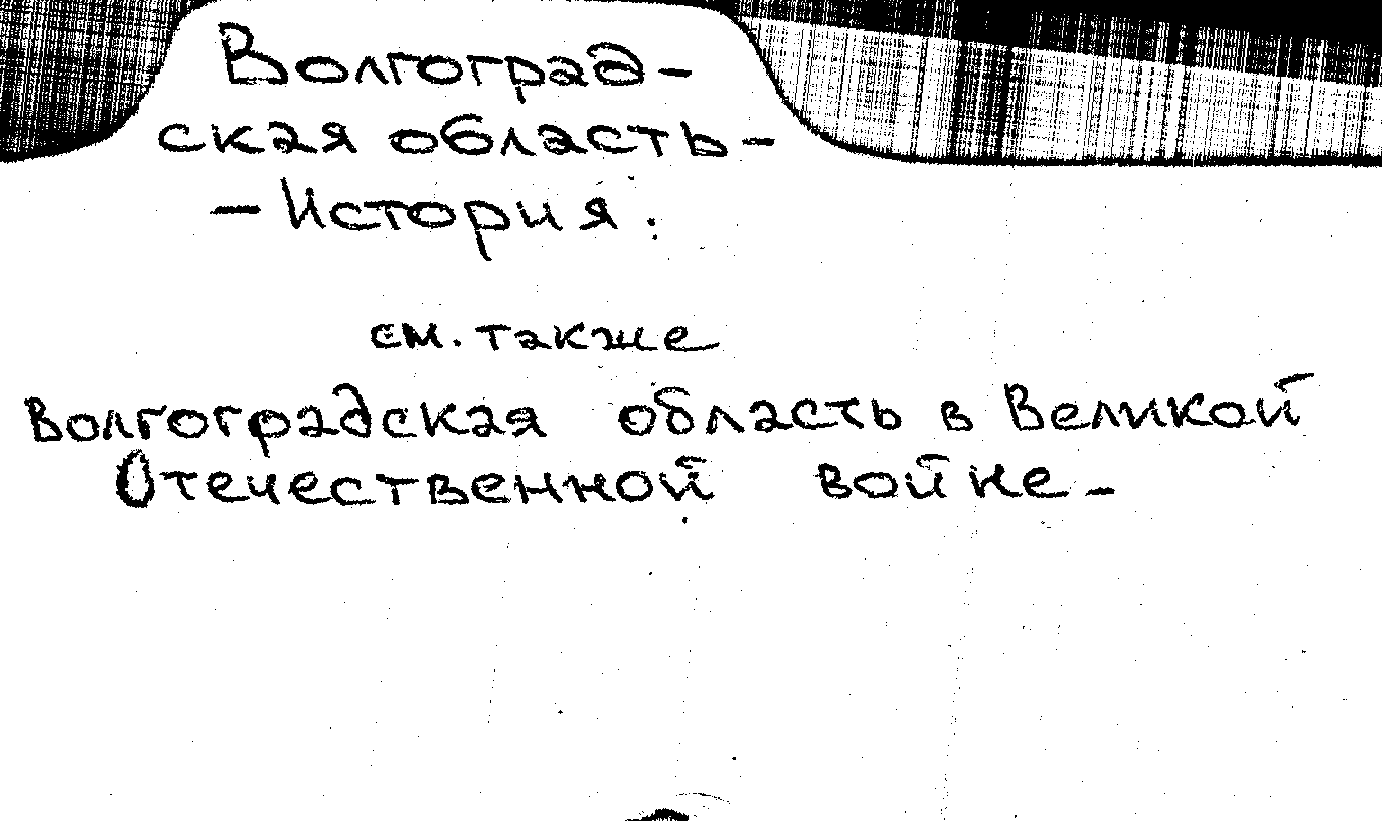 Волгоград-
ская область-
- История.
см. также
Волгоградская область в Великой
Отечественной войне.